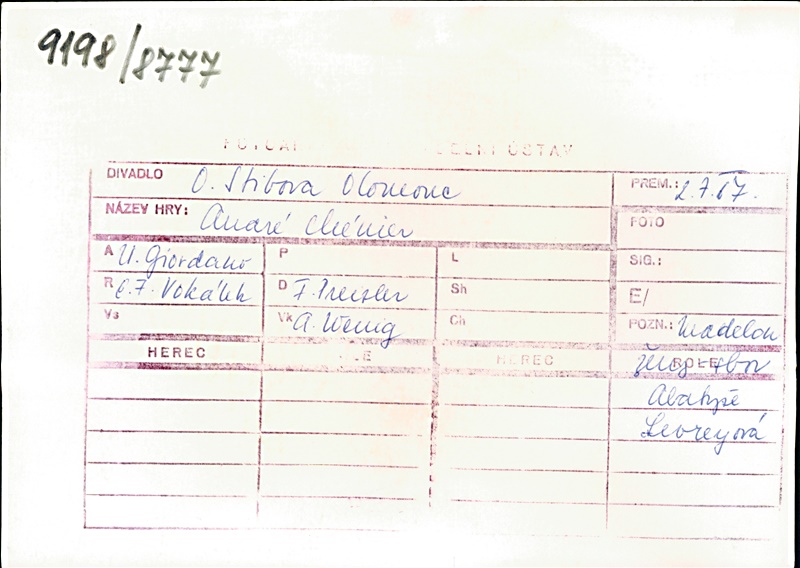 9198/8777
DIVADLO O. Stibora Olomouc PREM.: 2.7.67.
NÁZEV HRY: André Chénier FOTO
A U. Giordano P L SIG.:
R E.F. Vokálek D F. Preisler Sh E/
Vs Vk A. Wenig Ch POZN.: Madelon
HEREC HEREC ROLE
Abatyše
Levreyová